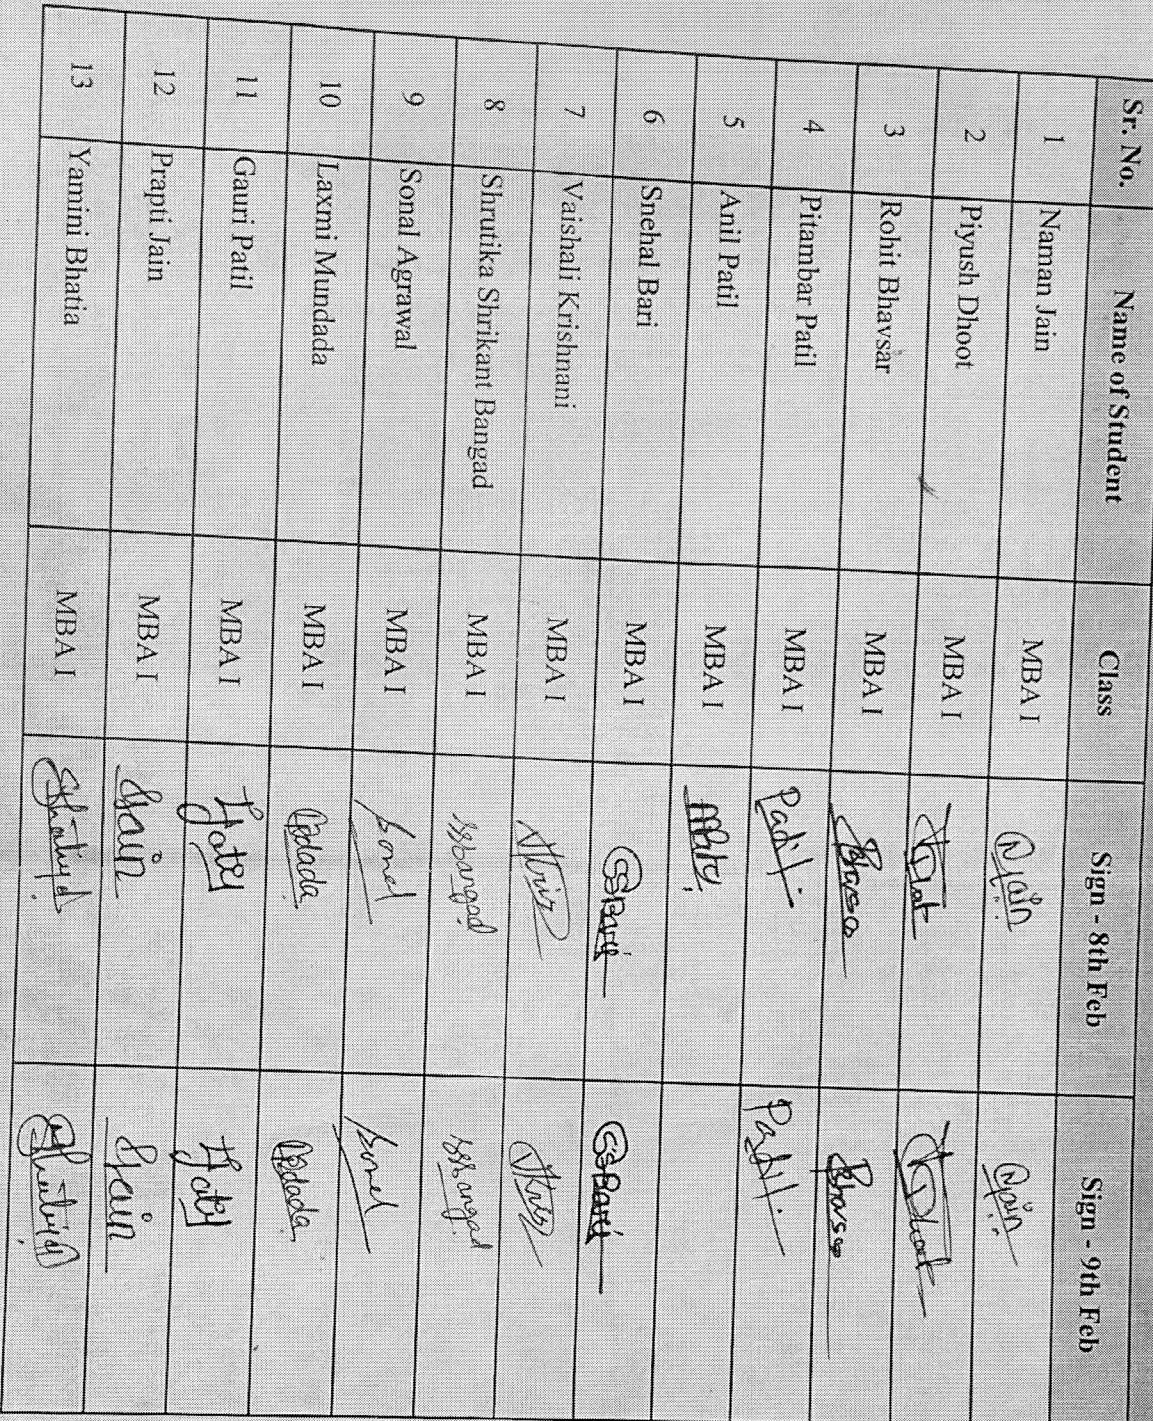 Sr. No. Name of Student Class Sign - 8th Feb Sign - 9th Feb
1 Naman Jain MBA I NJain NJain
2 Piyush Dhoot MBA I
3 Rohit Bhavsar MBA I
4 Pitambar Patil MBA I Patil. Patil.
5 Anil Patil MBA I
6 Snehal Bari MBA I SSBari SSBari
7 Vaishali Krishnani MBA I
8 Shrutika Shrikant Bangad MBA I SSBangad SSBangad
9 Sonal Agrawal MBA I Sonal Sonal
10 Laxmi Mundada MBA I
11 Gauri Patil MBA I
12 Prapti Jain MBA I Jain Jain
13 Yamini Bhatia MBA I